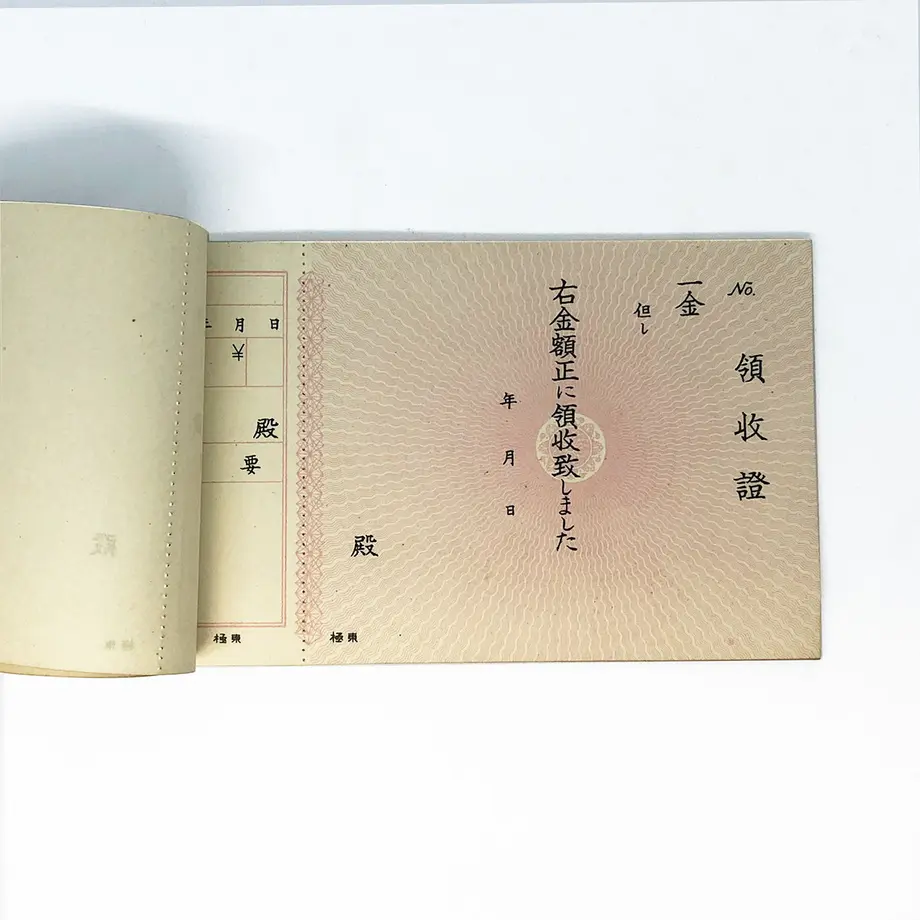 No.
領收證
一金
但し
右金額正に領收致しました
年 月 日
殿
極東
月 日
¥
殿
要
極東